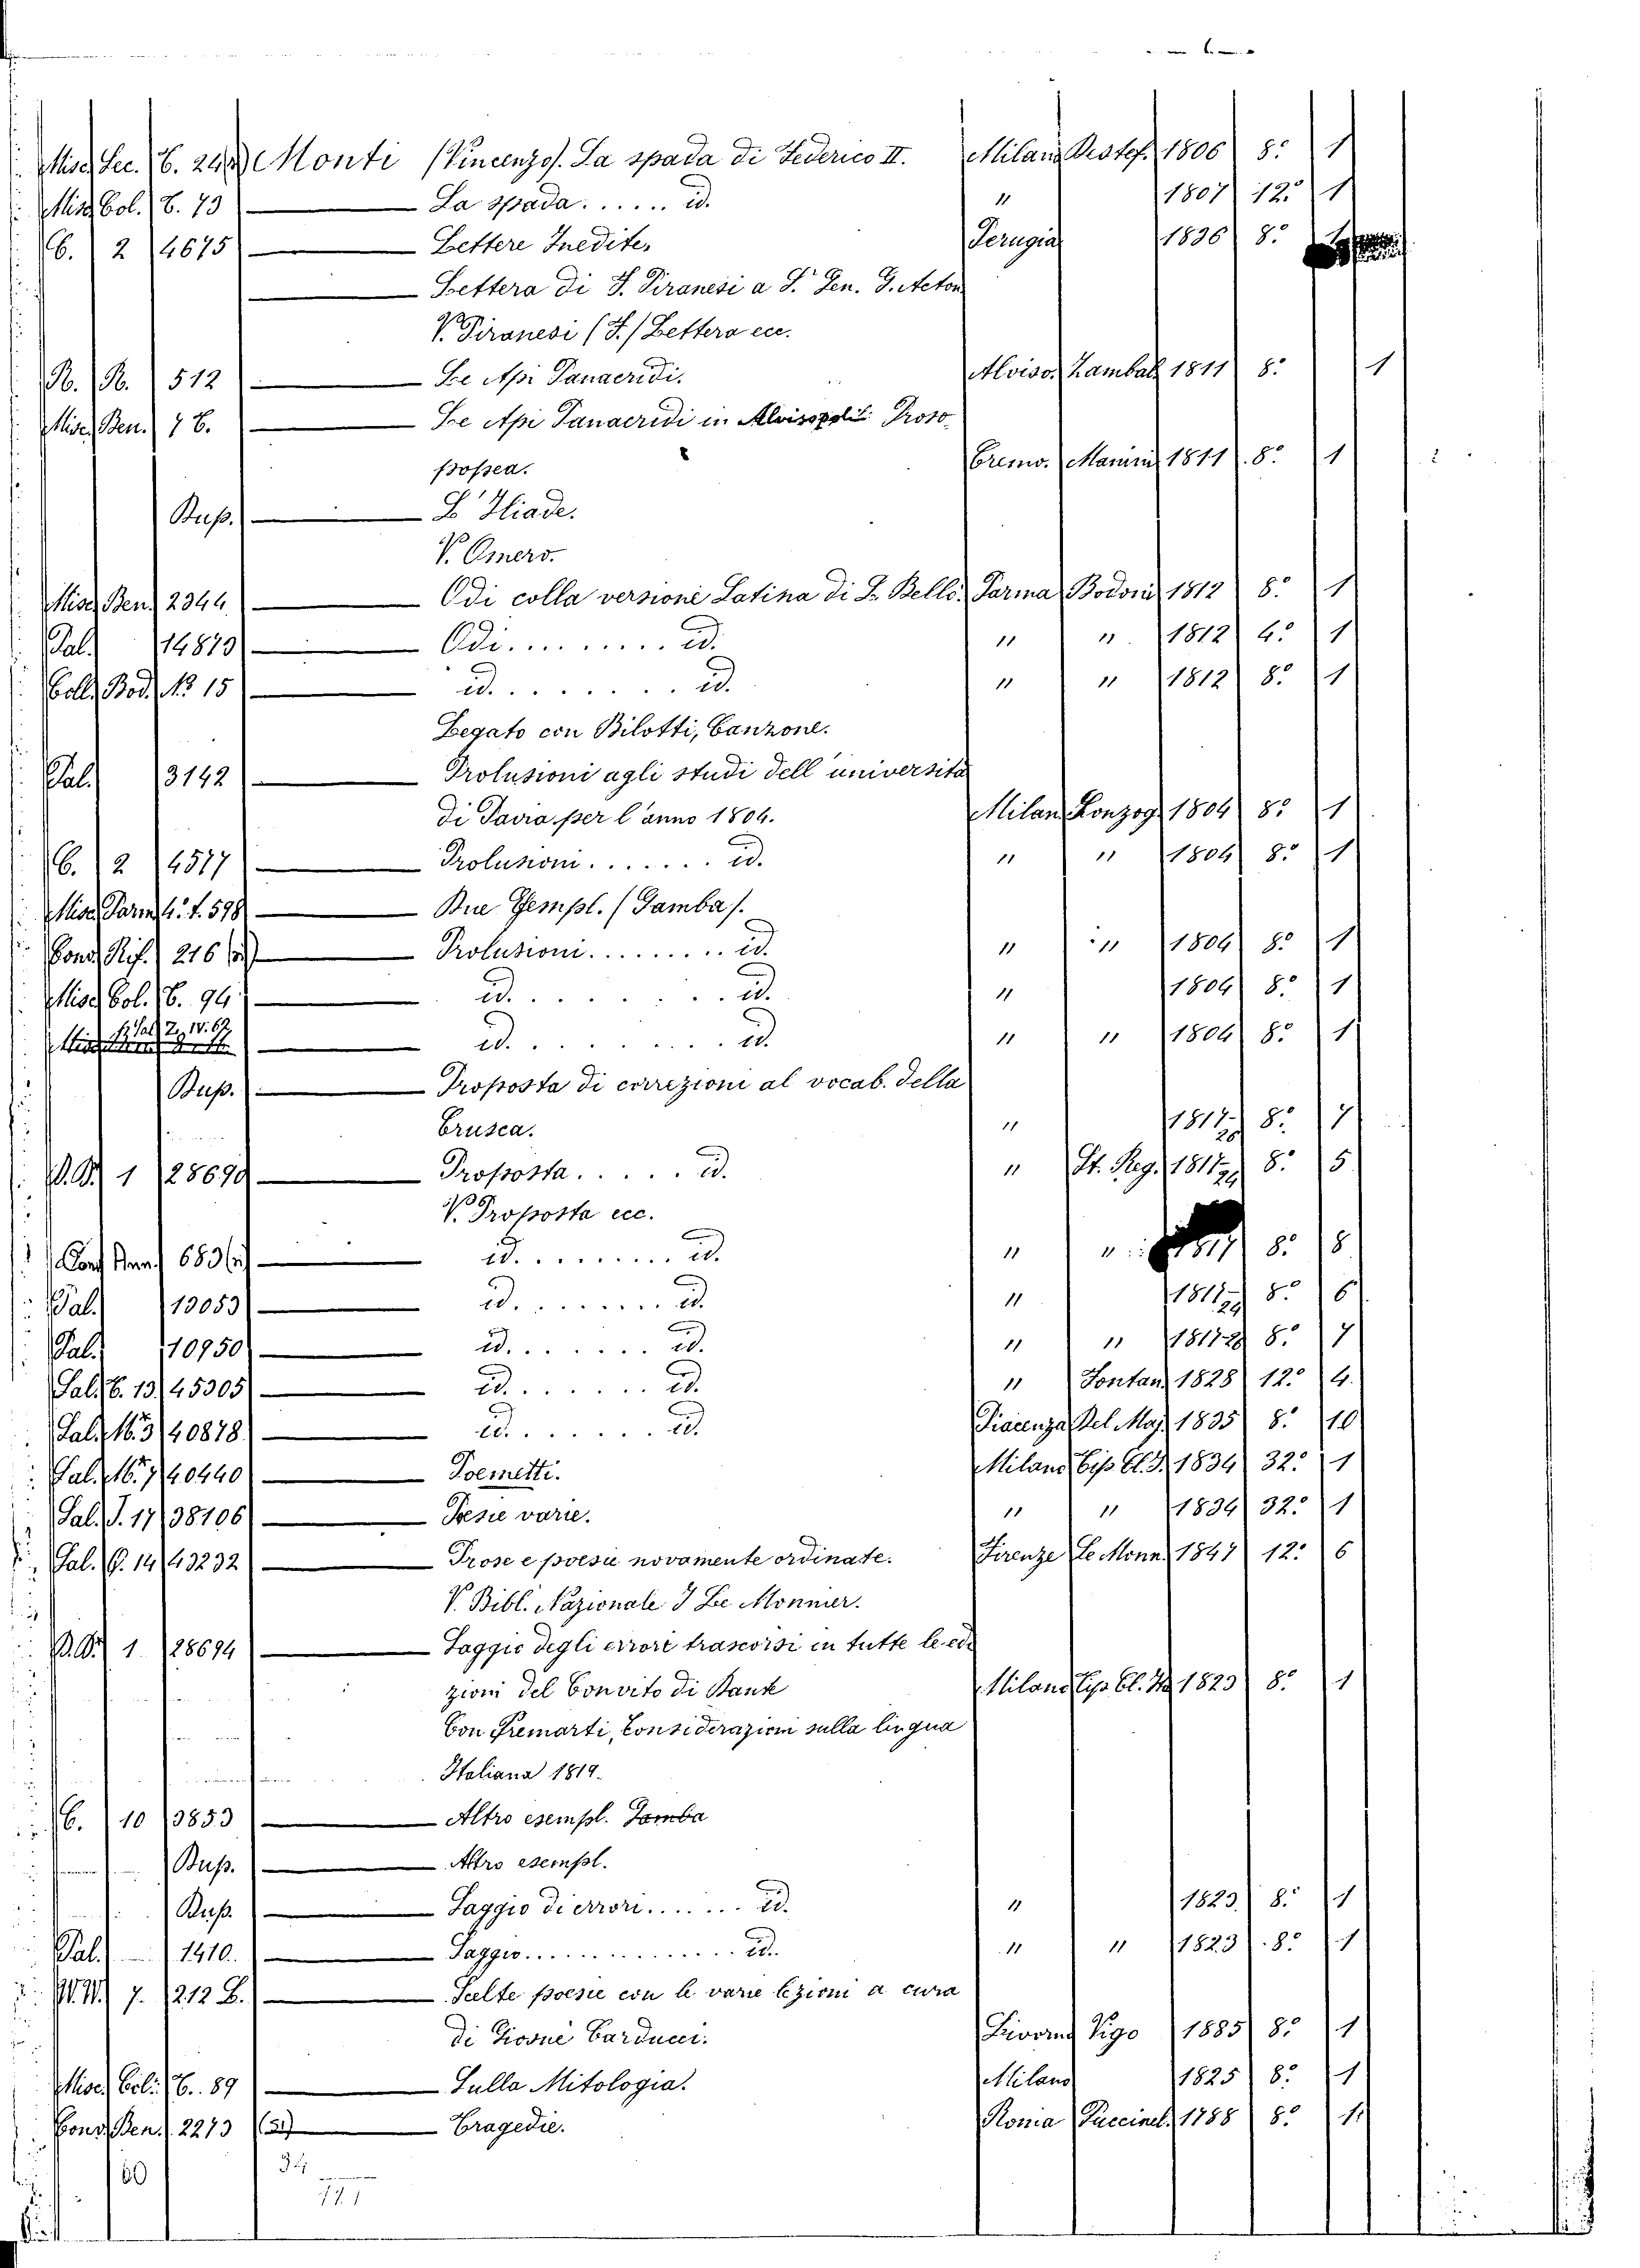 Misc. Sec. C. 24 Monti (Vincenzo). La spada di Federico II. Milano Destef. 1806 8.° 1
Misc. Col. C. 73 — La spada...... id. " 1807 12.° 1
C. 2 4675 — Lettere Inedite, Perugia 1836 8.°
— Lettera di F. Piranesi a S. Gen. G. Acton
V. Piranesi (F.) Lettera ecc.
R. R. 512 — Le Api Panacridi. Alviso. Zambal 1811 8.° 1
Misc. Ben. 7 C. — Le Api Panacridi in Alvisopoli Proso
popea. Cremo. Manini 1811 8.° 1
Dup. — L'Iliade.
V. Omero.
Misc. Ben. 2344 — Odi colla versione Latina di L. Bello. Parma Bodoni 1812 8.° 1
Pal. 14879 — Odi.......... id. " " 1812 4.° 1
Coll. Bod. N.° 15 — id......... id. " " 1812 8.° 1
Legato con Bilotti, Canzone.
Pal. 3142 — Prolusioni agli studi dell'università
di Pavia per l'anno 1804. Milan Sonzog. 1804 8.° 1
C. 2 4577 — Prolusioni....... id. " " 1804 8.° 1
Misc. Parm. 4.° t. 598 — Due Esempl. (Gamba).
Cons. Rif. 216 — Prolusioni......... id. " " 1804 8.° 1
Misc. Col. C. 94 — id......... id. " 1804 8.° 1
Sal. Z. IV. 67 — id......... id. " " 1804 8.° 1
Dup. — Proposta di correzioni al vocab. della
Crusca. " 1817 8.° 7
1 28690 — Proposta..... id. " St. Reg. 1817 8.° 5
V. Proposta ecc.
683 — id......... id. " " 1817 8.° 8
Pal. 13053 — id........ id. " 1817-24 8.° 6
Pal. 10950 — id....... id. " " 1817-26 8.° 7
Sal. C. 13 45305 — id...... id. " Fontan. 1828 12.° 4.
Sal. M. 3 40878 — id...... id. Piacenza Del Maj. 1835 8.° 10
Sal. M. 7 40440 — Poemetti. Milano Tip. Cl. I. 1834 32.° 1
Sal. I. 17 38106 — Poesie varie. " " 1834 32.° 1
Sal. G. 14 43232 — Prose e poesie novamente ordinate. Firenze Le Monn. 1847 12.° 6
V. Bibl. Nazionale F Le Monnier.
1 28694 — Saggio degli errori trascorsi in tutte le edi
zioni del Convito di Dante Milano Tip. Cl. It. 1823 8.° 1
Con Premarti, Considerazioni sulla lingua
Italiana 1819.
C. 10 3853 — Altro esempl. Gamba
Dup. — Altro esempl.
Dup. — Saggio di errori....... id. " 1823. 8.° 1
Pal. 1410. — Saggio............... id. " " 1823 8.° 1
W. W. 7. 212 B. — Scelte poesie con le varie lezioni a cura
di Giosuè Carducci. Livorno Vigo 1885 8.° 1
Misc. Col. C. 89 — Sulla Mitologia. Milano 1825 8.° 1
Cons. Ben. 2273 (51) — Tragedie. Roma Puccinel. 1788 8.° 1
60 34